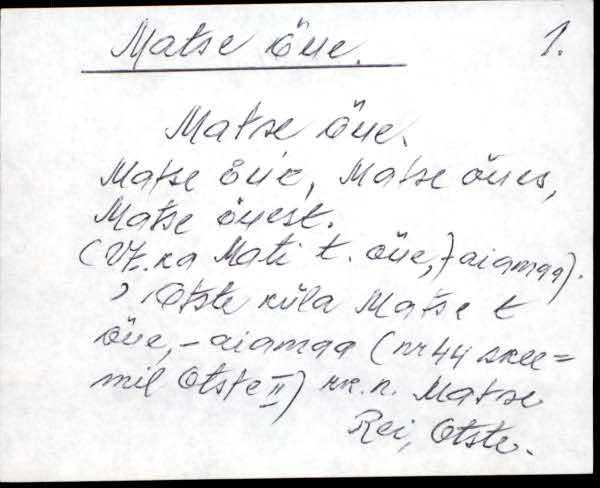 Matse õue. 1.
Matse õue.
Matse õue, Matse õues,
Matse õuest.
(Vt. ka Mati t. õue, -aiamaa).
, Otste küla Matse t
õue, -aiamaa (nr 44 skee=
mil Otste II) rk. n. Matse
Rei, Otste.